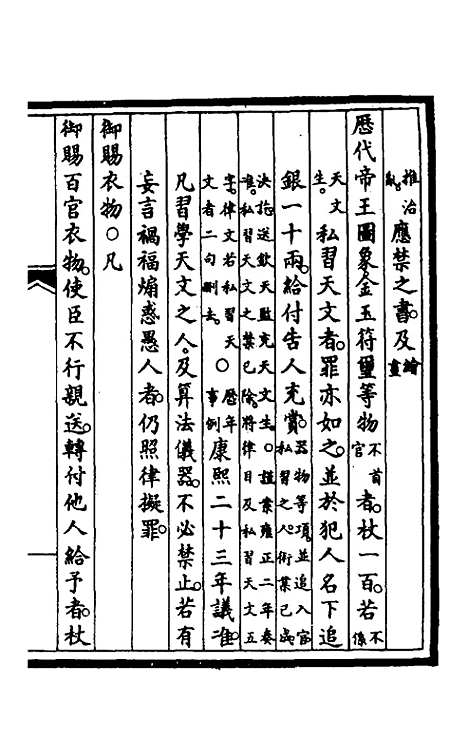 推治亂應禁之書及繪畫
歷代帝王圖象金玉符璽等物不首官者杖一百若不係
天文生私習天文者罪亦如之並於犯人名下追
銀一十兩給付告人充賞器物等項並追入官私習之人術業已成
決訖送欽天監充天文生○謹案雍正二年奏准私習天文之禁已除將律目及私習天文五
字律文若私習天文者二句刪去○歷年事例康熙二十三年議准
凡習學天文之人及算法儀器不必禁止若有
妄言禍福煽惑愚人者仍照律擬罪
御賜衣物○凡
御賜百官衣物使臣不行親送轉付他人給予者杖